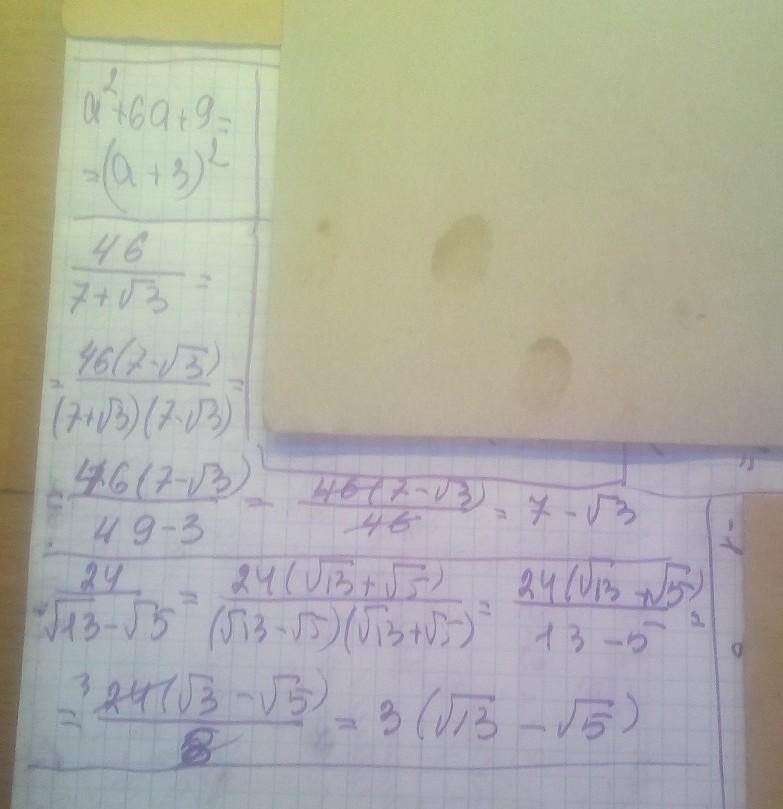 a²+6a+9=
=(a+3)²
46/(7+√3) =
= 46(7-√3)/((7+√3)(7-√3)) =
= 46(7-√3)/(49-3) = 46(7-√3)/46 = 7-√3
24/(√13-√5) = 24(√13+√5)/((√13-√5)(√13+√5)) = 24(√13+√5)/(13-5) =
= ³24(√3-√5)/8 = 3(√13-√5)